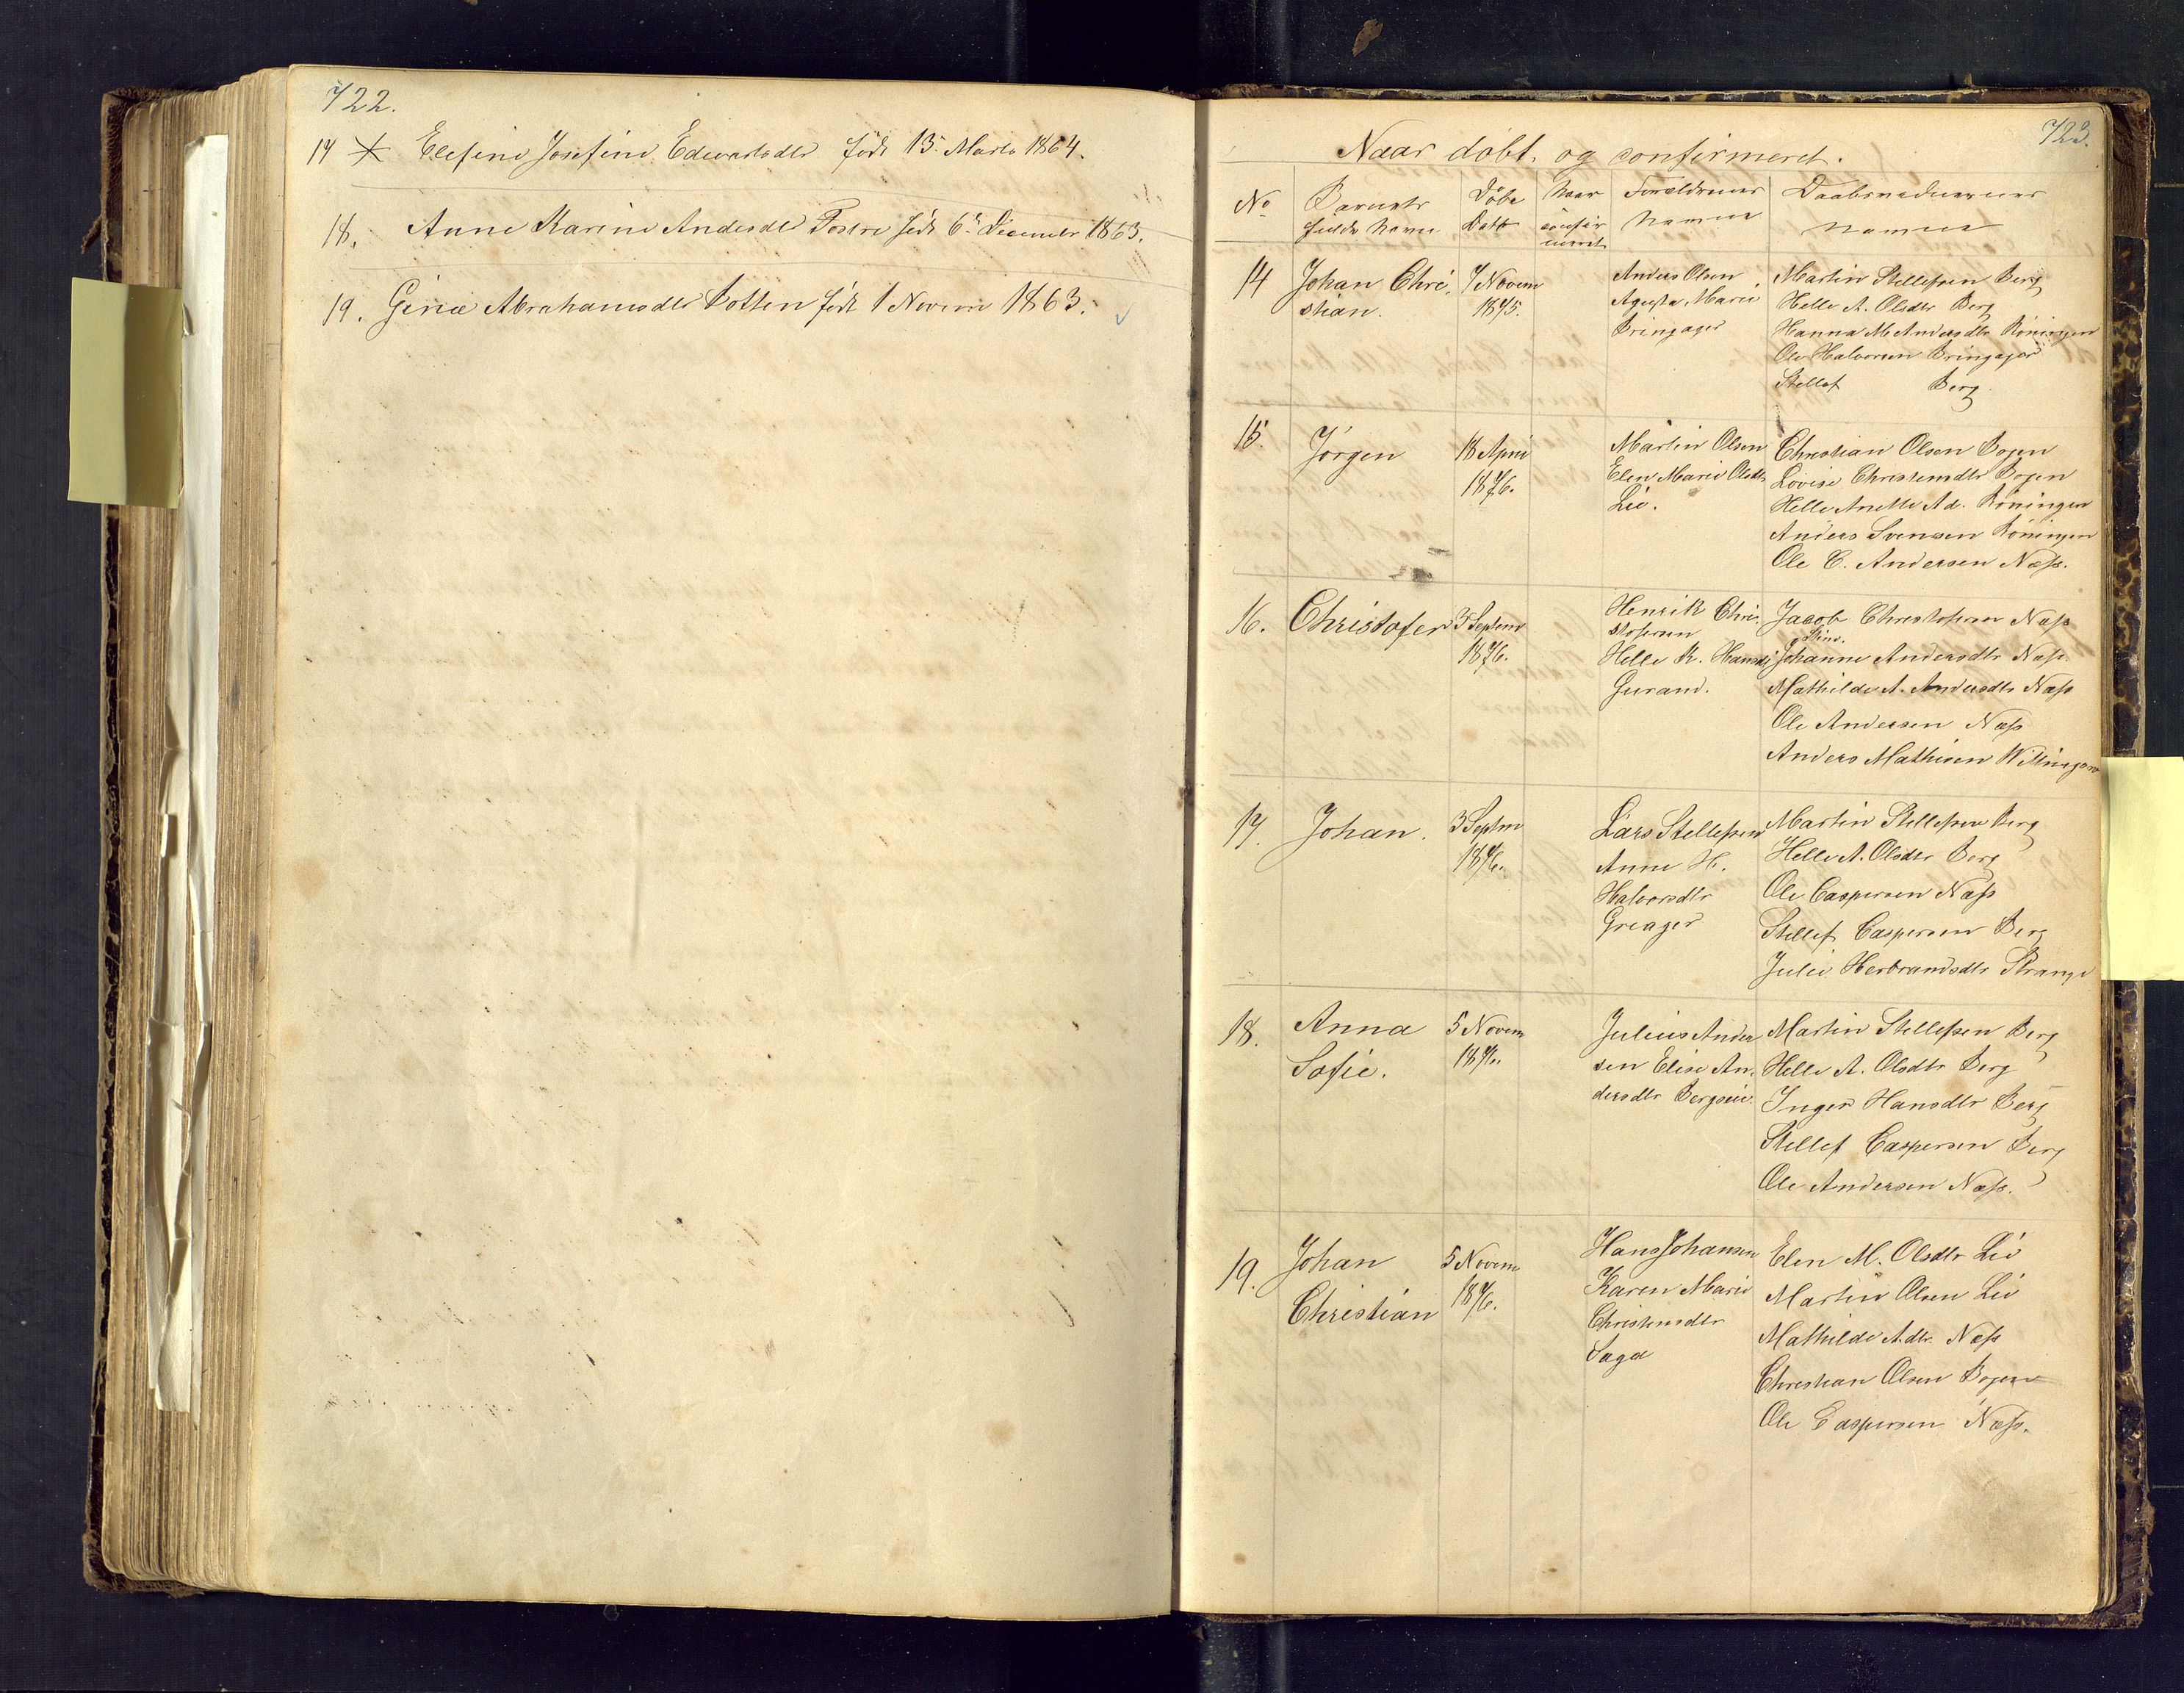 722.
17 Elefine Josefine Edwartsdtr född 13 Marts 1864.
18. Anne Karine Andersdtr Fostre född 6te December 1863.
19. Gina Abrahamsdtr Botten född 1 Novem 1863.
723.
Naar döbt. og confirmeret.
No
Barnets
fulde Navn
Döbe
Datt
Naar
confir
meret
Forældrenes
Namne
Daabsvidnernes
Namne
14
Johan Chri
stian.
7 Novem
1875.
Anders Olsen
Agusta Marie
Bringager
Martin Stellefsen Berg
Helle A. Olsdtr Berg
Hanna M. Andersdtr Röningen
Ole Halvorsen Bringager
Stellef Berg.
15.
Jörgen
18 April
1876.
Martin Olsen
Elen Marie Olsdtr
Lie.
Christian Olsen Bogen
Lovise Christensdtr Bogen
Helle Anette Ad. Röningen
Anders Svensen Röningen
Ole C. Andersen Næss.
16.
Christofer
3 Septem
1876.
Henrik Chri
stofersen
Helle K. Hansd
Gurand.
Jacob Christofersen Næss
Stine.
Johanne Andersdtr Næss
Mathilde A. Andersdtr Næss
Ole Andersen Næss
Anders Mathisen Willingen
17.
Johan.
3 Septm
1876.
Lars Stellefsen
Anne H.
Halvorsdtr
Greager
Martin Stellefsen Berg
Helle A. Olsdtr Berg
Ole Caspersen Næss
Stellef Caspersen Berg
Julie Herbrandsdtr Strange
18.
Anna
Sofie.
5 Novem
1876.
Julius Ander
sen Elise An.
dersdtr Bergseie.
Martin Stellefsen Berg
Helle A. Olsdtr Berg
Inger Hansdtr Berg
Stellef Caspersen Berg
Ole Andersen Næss.
19.
Johan
Christian
5 Novem
1876.
Hans Johansen
Karen Marie
Christensdtr
Saga
Elen M. Olsdtr Lie
Martin Olsen Lie
Mathilde A.dtr. Næss
Christian Olsen Bogen
Ole Caspersen Næss.